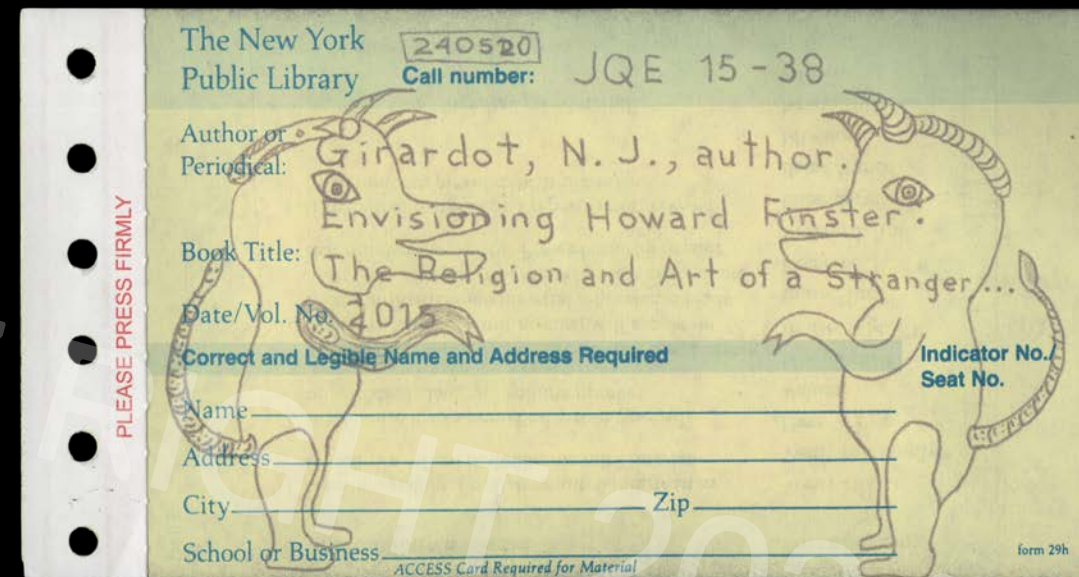 PLEASE PRESS FIRMLY
The New York
Public Library
240520
Call number: JQE 15-38
Author or
Periodical: Girardot, N. J., author.
Envisioning Howard Finster.
Book Title:
The Religion and Art of a Stranger...
Date/Vol. No. 2015
Correct and Legible Name and Address Required
Indicator No./
Seat No.
Name
Address
City Zip
School or Business
ACCESS Card Required for Material
form 29h
RIGHT 20